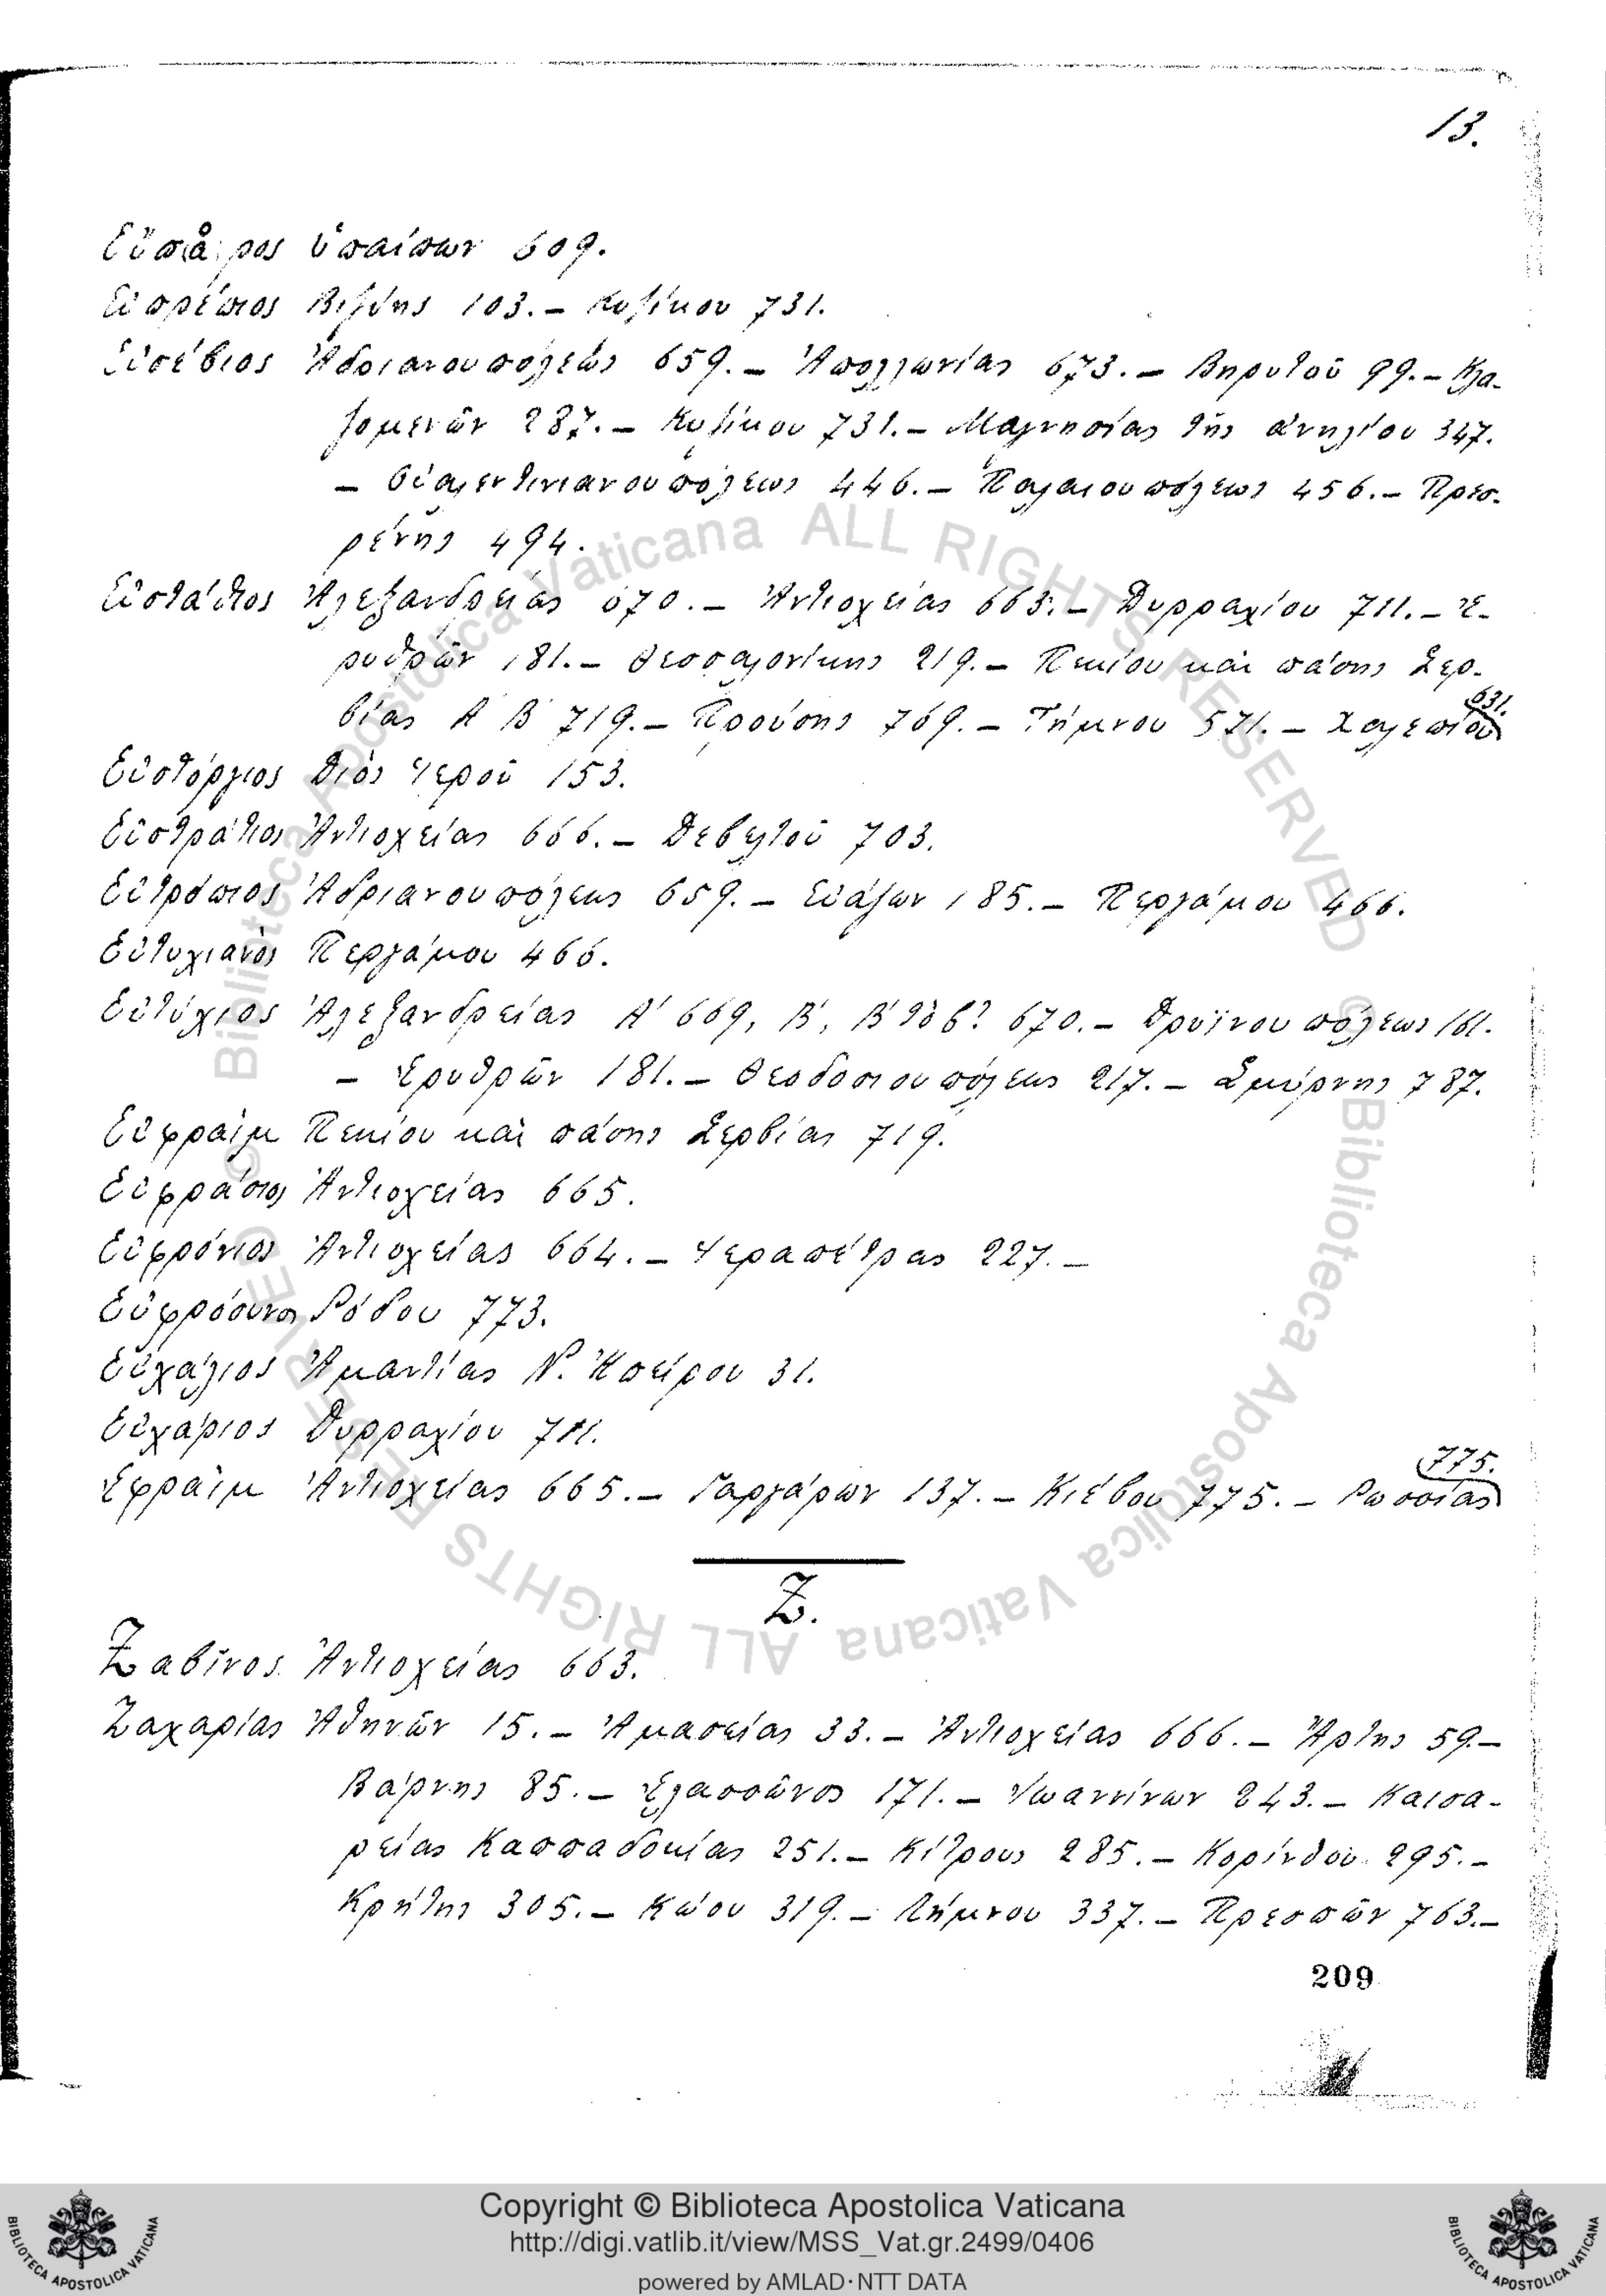 13.
Εὔπορος Ὑπαίπων 609.
Εὐπρέπιος Βιζύης 103. – Κυζίκου 731.
Εὐσέβιος Ἀδριανουπόλεως 659. – Ἀπολλωνίας 673. – Βηρυτοῦ 99. – Κλα-
ζομενῶν 287. – Κυζίκου 731. – Μαγνησίας τῆς ἀνηλίου 347.
– Οὐαλεντινιανουπόλεως 446. – Παλαιουπόλεως 456. – Πρεσ-
ρένης 494.
Εὐστάθιος Ἀλεξανδρείας 670. – Ἀντιοχείας 663. – Δυρραχίου 711. – Ἐ-
ρυθρῶν 181. – Θεσσαλονίκης 219. – Πεκίου καὶ πάσης Σερ-
βίας Α Β 719. – Προύσης 769. – Τήμνου 571. – Χαλεπίου 631.
Εὐστόργιος Διὸς Ἱεροῦ 153.
Εὐστράτιος Ἀντιοχείας 666. – Δεβελτοῦ 703.
Εὐτρόπιος Ἀδριανουπόλεως 659. – Εὐάζων 185. – Περγάμου 466.
Εὐτυχιανὸς Περγάμου 466.
Εὐτύχιος Ἀλεξανδρείας Α΄ 669, Β΄, Β΄ τὸ β? 670. – Δρυϊνουπόλεως 161.
– Ἐρυθρῶν 181. – Θεοδοσιουπόλεως 217. – Σμύρνης 787.
Εὐφραὶμ Πεκίου καὶ πάσης Σερβίας 719.
Εὐφράσιος Ἀντιοχείας 665.
Εὐφρόνιος Ἀντιοχείας 664. – Ἱεραπέτρας 227. –
Εὐφρόσυνος Ῥόδου 773.
Εὐχάλιος Ἀμαντίας Ν. Ἠπείρου 31.
Εὐχάριος Δυρραχίου 711.
Ἐφραὶμ Ἀντιοχείας 665. – Γαργάρων 137. – Κιέβου 775. – Ρωσσίας 775.
Ζ.
Ζαβῖνος Ἀντιοχείας 663.
Ζαχαρίας Ἀθηνῶν 15. – Ἀμασείας 33. – Ἀντιοχείας 666. – Ἄρτης 59. –
Βάρνης 85. – Ἐλασσῶνος 171. – Ἰωαννίνων 243. – Καισα-
ρείας Καππαδοκίας 251. – Κίτρους 285. – Κορίνθου 295. –
Κρήτης 305. – Κώου 319. – Λήμνου 337. – Πρεσπῶν 763. –
209
Copyright © Biblioteca Apostolica Vaticana
http://digi.vatlib.it/view/MSS_Vat.gr.2499/0406
powered by AMLAD·NTT DATA
BIBLIOTECA APOSTOLICA VATICANA
BIBLIOTECA APOSTOLICA VATICANA
© Biblioteca Apostolica Vaticana ALL RIGHTS RESERVED
© Biblioteca Apostolica Vaticana ALL RIGHTS RESERVED